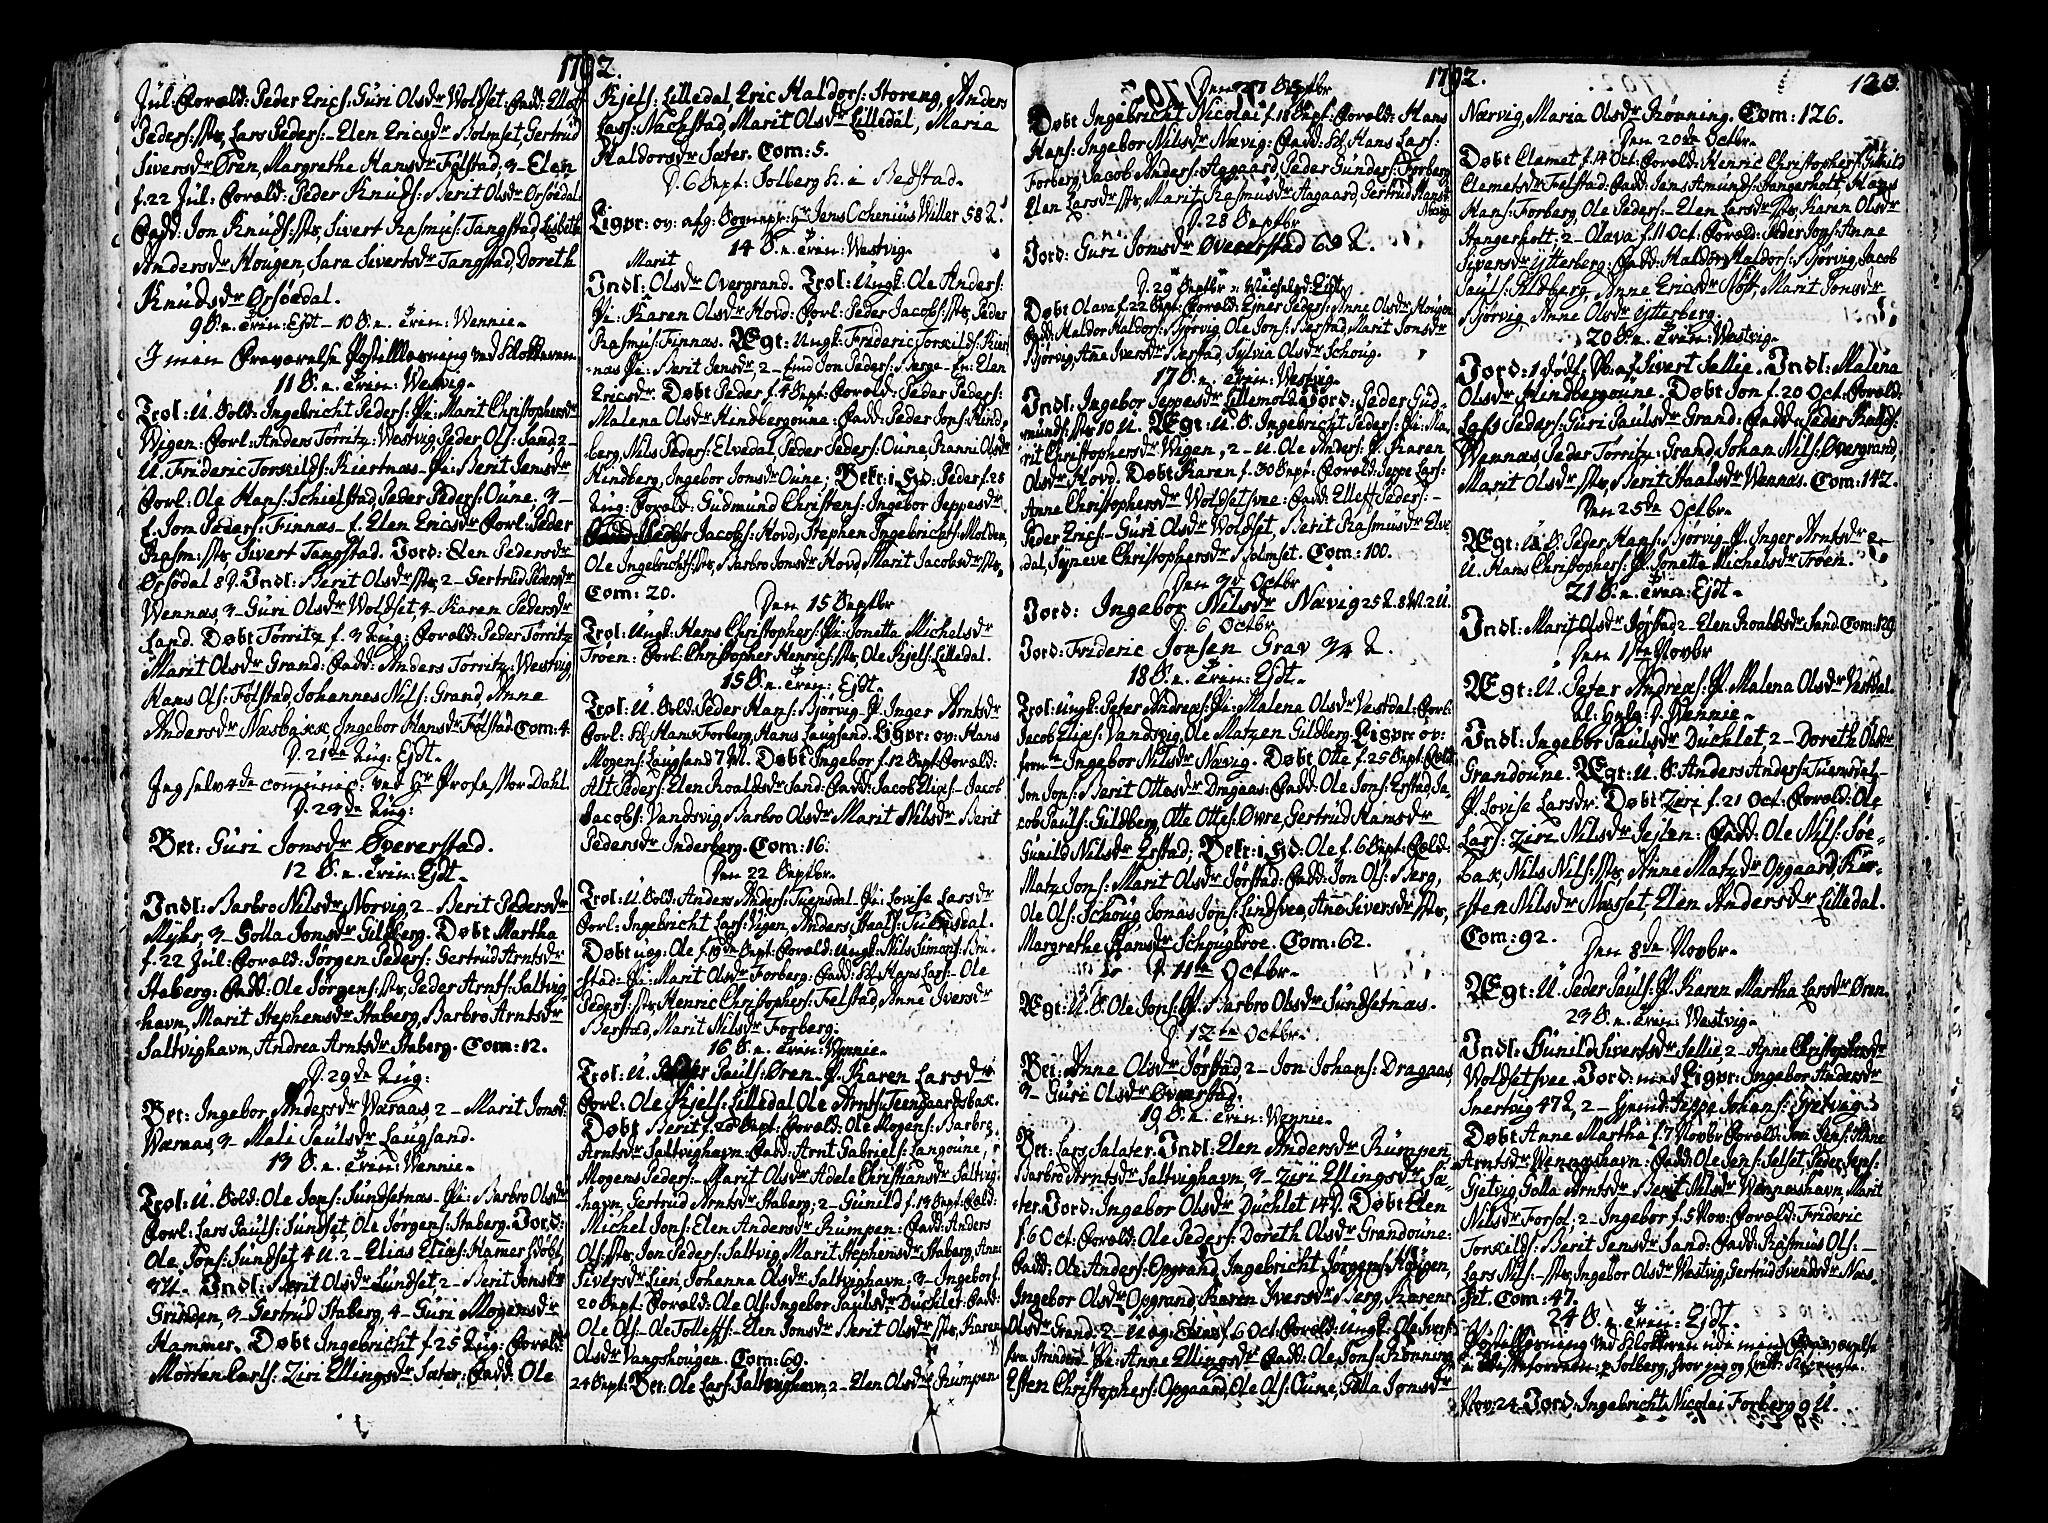 1792.
Jul: Foræld: Peder Erics: Guri Olsdr Woldset: Fadd: Ellef
Peders: sts, Lars Peders: - Elen Ericsdr Holmset, Gertrud
Siversdr Øren, Margrethe Hansdr Følstad, 3 - Elen
f. 22 Jul: Foræld: Peder Knuds: Berit Olsdr Ørsøedal
Fadd: Jon Knuds: sts, Sivert Rasmus: Tangstad, Lisbeth
Andersdr Hougen, Sara Sivertsdr Tangstad, Doreth
Knudsdr Ørsøedal.
9 S. n. Trin: Egdt - 10 S. n. Trin: Wennie -
I min Fraværelse Postillæsning ved Klokkeren
11 S. n. Trin: Westvig -
Trol: U. Sold: Ingebricht Peders: Pi: Marit Christophersdr
Wigen: Forl: Anders Törritz: Westvig, Peder Ols: Sand, 2 -
U. Frideric Torkilds: Kiertnæs - Pi: Berit Jensdr
Forl: Ole Hans: Schielstad, Peder Peders: Oune. 3 -
f. Jon Peders: Finnæs - f. Elen Ericsdr Forl: Peder
Rasm: sts Sivert Tangstad. Jord: Elen Pedersdr
Ørsödal 8 D. Indl: Berit Olsdr sts, 2 - Gertrud Pedersdr
Wennæs, 3 - Guri Olsdr Woldset, 4 - Karen Pedersdr
Sand. Døbt Törritz f. 3 Aug: Foræld: Peder Törritz
Marit Olsdr Grand: Fadd: Anders Törritz: Westvig,
Hans Ols: Følstad, Johannes Nils: Grand, Anne
Andersdr Næsbakk, Ingebor Hansdr Følstad Com: 4.
D. 21de Aug: Egdt.
Jeg selv 4de communic: ved Hr Professor Dahl.
D. 24de Aug:
Bet: Guri Jonsdr Øvererstad.
12 S. n. Trin: Egdt -
Indl: Barbro Nilsdr Norvig, 2 - Berit Pedersdr
Myhr, 3 - Golla Jonsdr Gildberg. Døbt Martha
f. 22 Jul: Foræld: Jørgen Peders: Gertrud Arntsdr
Staberg: Fadd: Ole Jørgens: sts, Peder Arnts: Saltvig-
havn, Marit Stephensdr Staberg, Barbro Arntsdr
Saltvighavn, Andrea Arntsdr Staberg. Com: 12.
D. 29de Aug:
Bet: Ingebor Andersdr Wæraas, 2 - Marit Jonsdr
Wæraas, 3 - Mali Paulsdr Laugsand.
13 S. n. Trin: Wennie -
Trol: U. Sold: Ole Jons: Sundsetnæs - Pi: Barbro Olsdr
Forl: Lars Pauls: Sundset, Ole Jørgens: Staberg. Jord:
Ole Jons: Sundset 4 U. 2 - Elias Elias: Hammer døbt
3 U. Indl: Berit Olsdr Sundset 2 - Berit Jonsdr
Grunden, 3 - Gertrud Staberg, 4 - Guri Mogensdr
Hammer. Døbt Ingebricht f. 25 Aug: Foræld:
Morten Carls: Ziri Ellingsdr Sæter: Fadd: Ole
Kjels: Lilledal, Eric Haldors: Storeng, Anders
Lars: Nackstad, Marit Olsdr Lilledal, Maria
Haldorsdr Sæter. Com: 5.
D. 6 Sept: Solberg K. i Bedstad.
Ligpr: ov: afg: Sognepr: Hr Jens Ochenius Willer 58 Z.
14 S. n. Trin: Westvig -
Marit
Indl: Olsdr Overgrand. Trol: Ungk: Ole Anders:
Pi: Karen Olsdr Hovd: Forl: Peder Jacobs: sts, Peder
Rasmus: Finnæs. Ægt: Ungk: Frideric Torkilds: Kiert
-næs Pi: Berit Jensdr 2 - Emd Jon Peders: Berge - fn: Elen
Ericsdr. Døbt Peder f. 4 Sept: Foræld: Peder Peders:
Malena Olsdr Hindbergoune: Fadd: Peder Jons: Hind-
berg, Nils Peders: Elvedal, Peder Peders: Oune, Ranni Olsdr
Hindberg, Ingebor Jonsdr Oune; Bekr: i Hd: Peder f. 28
Aug: Foræld: Gudmund Christens: Ingebor Jeppesdr
Fadd: Peder Jacobs: Hovd, Stephen Ingebrichts: Molden,
Ole Ingebrichts: sts, Barbro Jonsdr Hovd, Marit Jacobsdr sts,
Com: 20.
Den 15 Septbr
Trol: Ungk: Hans Christophers: Pi: Jonetta Michelsdr
Trøen: Forl: Christopher Henrics: sts, Ole Kjels: Lilledal.
15 S. n. Trin: Egdt -
Trol: U. Sold: Peder Hans: Bjørvig P. Inger Arntsdr
Forl: Kl. Hans Forberg, Hans Laugsand. Ligpr: ov: Hans
Mogens: Laugsand 7 M. Døbt Ingebor f. 12 Sept: Foræld:
Alt Peders: Elen Roaldsdr Sand: Fadd: Jacob Elias: - Jacob
Jacobs: Vandsvig, Barbro Olsdr Marit Nilsdr Berit
Pedersdr Inderberg. Com: 16.
Den 22 Septbr -
Trol: U. Sold: Anders Anders: Tuensdal Pi: Lovise Larsdr
Forl: Ingebricht Lars: Vigen, Anders Haals: Tuensdal.
Døbt uæg: Ole f. 19de Sept: Foræld: Ungk: Nils Simons: Bru-
stad - Pi: Marit Olsdr Forberg: Fadd: Kl. Hans Lars: - Ole
Peders: sts, Henric Christophers: Fielstad, Anne Iversdr
Berstad, Marit Nilsdr Forberg.
16 S. n. Trin: Wennie -
Trol: U. Peder Pauls: Øren. P. Karen Larsdr
Forl: Ole Kjels: Lilledal Ole Arnts: Teengaardsbak.
Døbt Berit f. 20 Sept: Foræld: Ole Mogens: Barbro
Arntsdr Saltvighavn: Fadd: Arnt Gabriels: Langoune,
Mogens Peders: - Marit Olsdr Adele Christiansdr Saltvig-
havn, Gertrud Arntsdr Staberg; 2 - Gunild f. 19 Sept: Foræld:
Michel Jons: Elen Andersdr Rumpen: Fadd: Anders
Ols: sts, Jon Peders: Saltvig, Marit Stephensdr Staberg, Anne
Siversdr Lien, Johanna Olsdr Saltvighavn; 3 - Ingebor f.
20 Sept: Foræld: Ole Ols: Ingebor Paulsdr Ducklet: Fadd:
Ole Ols: - Ole Tollefs: - Elen Jonsdr Berit Olsdr sts, Karen
Olsdr Vangshougen. Com: 69.
24 Sept: Bet: Ole Lars: Saltvighavn, 2 - Elen Olsdr Rumpen
1792.
123.
Den 27 Septbr
Døbt Ingebricht Nicolai f. 18 Sept: Foræld: Hans
Hans: Ingebor Nilsdr Nævig: Fadd: Kl. Hans Lars:
Forberg, Jacob Anders: Aagaard, Peder Gunders: Forberg
Elen Larsdr sts, Marit Rasmusdr Aagaard, Gertrud Hansdr
Nævig.
D. 28 Septbr
Jord: Guri Jonsdr Øvererstad 69 Z.
D. 29 Septbr Michelsd: Egdt
Døbt Olava f. 22 Sept: Foræld: Ejner Peders: Anne Olsdr Hougen
Fadd: Haldor Haldors: Bjørvig Ole Jons: Berstad, Marit Jonsdr
Bjørvig, Anne Iversdr Berstad, Sylvia Olsdr Schoug.
17 S. n. Trin: Westvig -
Indl: Ingebor Jeppesdr Gillemold. Jord: Peder Gud-
munds: sts 10 U. Ægt: U. S. Ingebricht Peders: Pi: Ma-
rit Christophersdr Wigen, 2 - U. Ole Anders: P. Karen
Olsdr Hovd. Døbt Karen f. 30 Sept. Foræld: Jeppe Lars:
Anne Christophersdr Woldsetsvee: Fadd: Elleff Peders: -
Peder Erics: - Guri Olsdr Woldset, Berit Rasmusdr Elve-
dal, Synneve Christophersdr Holmset. Com: 100.
Den 3d Octbr
Jord: Ingebor Nilsdr Nævig 25 Z. 8 M. 2 U.
D. 6 Octbr
Jord: Frideric Jonsen Grav 3/4 Z.
18 S. n. Trin: Egdt -
Trol: Ungk: Peter Andreas: Pi: Malena Olsdr Vestdal: Forl:
Jacob Elias: Vandsvig, Ole Matzen Gildberg. Ligpr: ov:
Ingebor Nilsdr Nævig. Døbt Otte f. 25 Sept: Foræld:
Jon Jons: Berit Ottesdr Dragaas: Fadd: Ole Jons: Erstad, Ja-
cob Pauls: Gildberg, Otte Ottes: Øvre, Gertrud Hansdr
Gunild Nilsdr Erstad; Bekr: i Hd: Ole f. 6 Sept: Foræld:
Matz Jons: Marit Olsdr Jørstad: Fadd: Jon Ols: Berg,
Ole Ols: Schoug Jonas Jons: Lindsvea, Anne Siversdr sts,
Margrethe Hansdr Schougbroe. Com: 62.
D. 11te Octbr -
Ægt: U. S. Ole Jons: P. Barbro Olsdr Sundsetnæs.
D. 12te Octbr -
Bet: Anne Olsdr Jørstad, 2 - Jon Johans: Dragaas,
3 - Guri Olsdr Øvererstad.
19 S. n. Trin: Wennie -
Bet: Lars Salater. Indl: Elen Andersdr Rumpen,
Barbro Arntsdr Saltvighavn, 3 - Ziri Ellingsdr Sæ-
ter. Jord: Ingebor Olsdr Ducklet 14 D. Døbt Elen
f. 6 Oct: Foræld: Ole Peders: Doreth Olsdr Grandoune:
Fadd: Ole Anders: Opgrand, Ingebricht Jørgens: Hougen,
Ingebor Olsdr Opgrand, Karen Iversdr Berg, Karen
Olsdr Grand. 2 - Uæg: f. 6 Oct: Foræld: Ungk: Ole Ivers:
fra Stranden Pi: Anne Ellingsdr Fadd: Ole Jons: Rønning,
Esten Christophers: Opgaard, Ole Ols: Oune, Golla Jonsdr
Nærvig, Maria Olsdr Rönning. Com: 126.
Den 20de Octbr -
Døbt Clemet f. 14 Oct: Foræld: Henric Christophers: Gunild
Clemetsdr Fielstad: Fadd: Jens Amunds: Hangerholt, Hans
Hans: Forberg, Ole Peders: - Elen Larsdr sts, Karen Olsdr
Hangerholt; 2 - Olava f. 11 Oct: Foræld: Peder Jons: Anne
Siversdr Ytterberg: Fadd: Haldor Haldors: Bjørvig, Jacob
Pauls: Kloberg, Anne Ericsdr Nøst, Marit Jonsdr
Bjørvig, Anne Olsdr Ytterberg.
20 S. n. Trin: Westvig -
Jord: 1 dødf. Pb: af Sivert Sellie. Indl: Malena
Olsdr Hindbergoune. Døbt Jon f. 20 Oct: Foræld:
Peders: Guri Paulsdr Grand: Fadd: Peder Knuds:
Wennæs, Peder Törritz: Grand, Johan Nils: Overgrand,
Marit Olsdr sts, Berit Haalsdr Wennæs. Com: 142.
Den 25de Octbr -
Ægt: U. S. Peder Hans: Bjørvig - P. Inger Arntsdr 2 -
U. Hans Christophers: P. Jonetta Michelsdr Trøen.
21 S. n. Trin: Egdt -
Indl: Marit Olsdr Jørstad 2 - Elen Roaldsdr Sand. Com: 129.
Den 1ste Novbr
Ægt: U. Peter Andreas: P. Malena Olsdr Vestdal.
Al: Helg: D. Wennie -
Indl: Ingebor Paulsdr Ducklet, 2 - Doreth Olsdr
Grandoune. Ægt: U. S. Anders Anders: Tuensdal -
P. Lovise Larsdr. Døbt Ziri f. 21 Oct: Foræld: Ole
Lars: Ziri Nilsdr Jejlen: Fadd: Ole Nils: Søe-
bak, Nils Nils: sts, Anne Matzdr Opgaard, Kir-
sten Nilsdr Masset, Elen Andersdr Lilledal.
Com: 92.
Den 8de Novbr -
Ægt: U. Peder Pauls: P. Karen Martha Larsdr Øren.
23 S. n. Trin: Westvig -
Indl: Gunild Sivertsdr Sellie 2 - Anne Christophersdr
Woldsetsvee. Jord: med Ligpr: Ingebor Andersdr
Snertvig 47 Z, 2 - Jeppe Johans: Gjetvig
Døbt Anne Martha f. 7 Novbr Foræld: Jon Jens: Anne
Arntsdr Wennæshavn: Fadd: Ole Jens: Selset, Peder Jens:
Gjetvig, Golla Arntsdr Berit Nilsdr Wennæshavn, Marit
Nilsdr Forsol; 2 - Ingebor f. 5 Nov: Foræld: Frideric
Torkilds: Berit Jensdr Sand: Fadd: Rasmus Ols: -
Lars Nils: - sts, Ingebor Olsdr Westvig, Gertrud Svendsdr Næs-
Com: 47.
24 S. n. Trin: Egdt -
Postillæsning ved Klokkeren udi min Fraværelse
Solberg, hvor jeg og
Nov: 24 Jord: Ingebricht Nicolai Forberg 9 U.